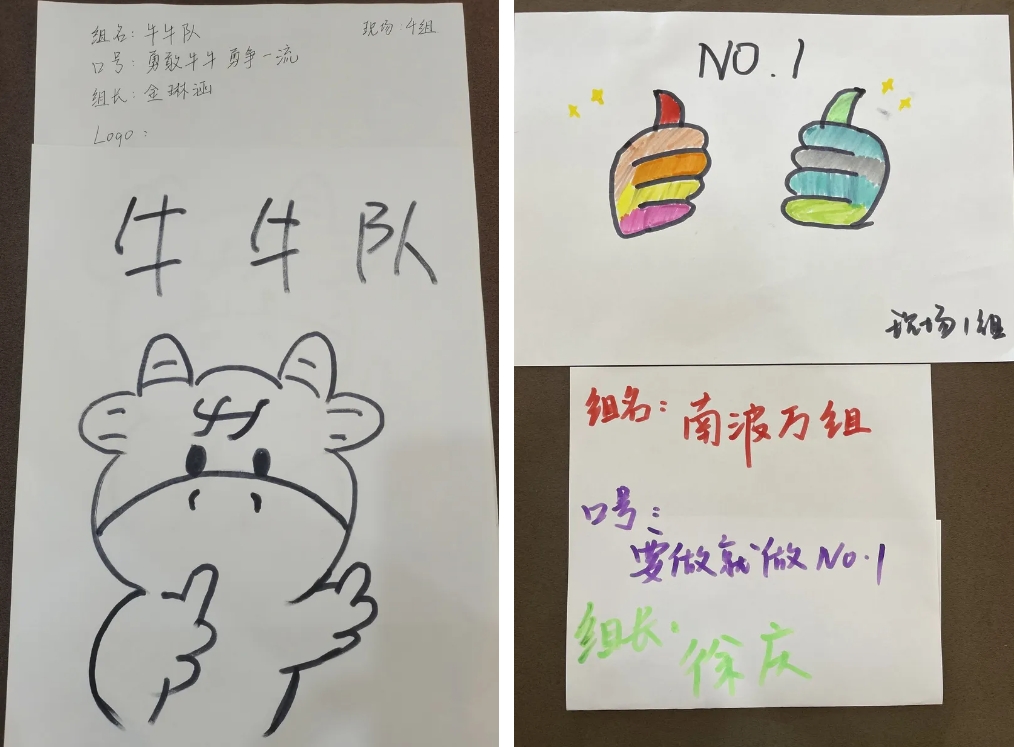 组名: 牛牛队
现场:4组
口号: 勇敢牛牛 勇争一流
组长: 金琳涵
Logo:
牛牛队
牛
NO.1
现场1组
组名: 南波万组
口号:
要做就做NO.1
组长:
徐庆